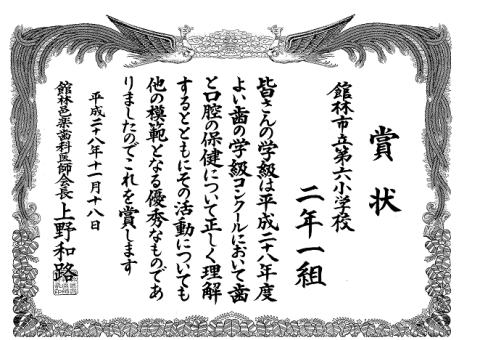 賞状
館林市立第六小学校
二年一組
皆さんの学級は平成二十八年度
よい歯の学級コンクールにおいて歯
と口腔の保健について正しく理解
するとともにその活動についても
他の模範となる優秀なものであ
りましたのでこれを賞します
平成二十八年十一月十八日
館林邑楽歯科医師会長 上野和路